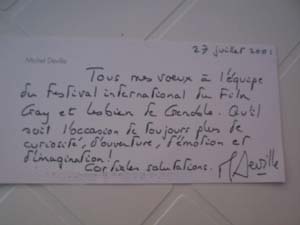 27 juillet 2001
Michel Deville
Tous mes vœux à l'équipe
du Festival international du Film
Gay et Lesbien de Grenoble. Qu'il
soit l'occasion de toujours plus de
curiosité, d'ouverture, d'émotion et
d'imagination!
Cordiales salutations. M Deville